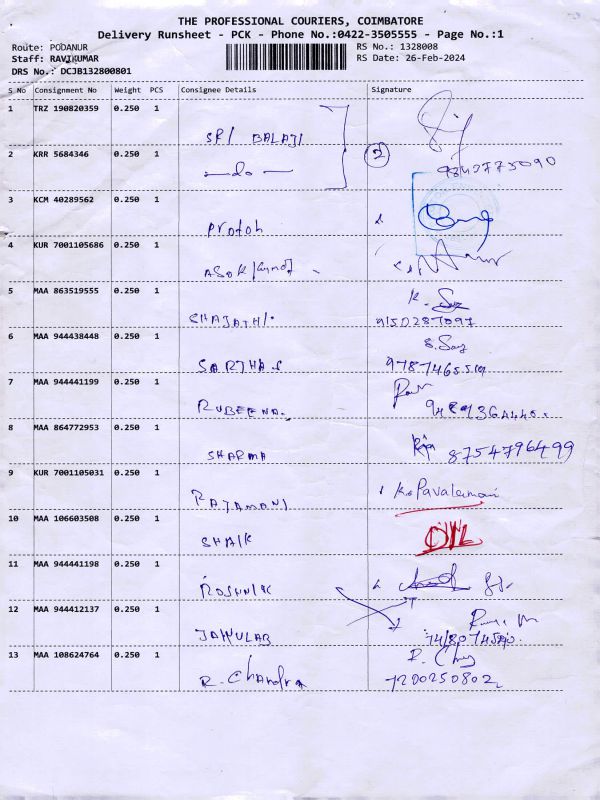 THE PROFESSIONAL COURIERS, COIMBATORE
Delivery Runsheet - PCK - Phone No.:0422-3505555 - Page No.:1
Route: PODANUR RS No.: 1328008
Staff: RAVIKUMAR RS Date: 26-Feb-2024
DRS No.: DCJB132800801
S No Consignment No Weight PCS Consignee Details Signature
1 TRZ 190820359 0.250 1
SRI BALAJI
2 KRR 5684346 0.250 1 2
—do—
3 KCM 40289562 0.250 1
4 KUR 7001105686 0.250 1
5 MAA 863519555 0.250 1
6 MAA 944438448 0.250 1
7 MAA 944441199 0.250 1
RUBEENA.
8 MAA 864772953 0.250 1
SHARMA 8754796499
9 KUR 7001105031 0.250 1
RAJAMANI
10 MAA 106603508 0.250 1
SHAIK
11 MAA 944441198 0.250 1
12 MAA 944412137 0.250 1
13 MAA 108624764 0.250 1
R. Chandra 7200250802